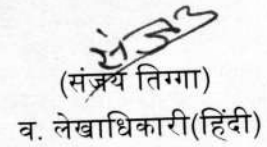 संजय
(संजय तिग्गा)
व. लेखाधिकारी(हिंदी)